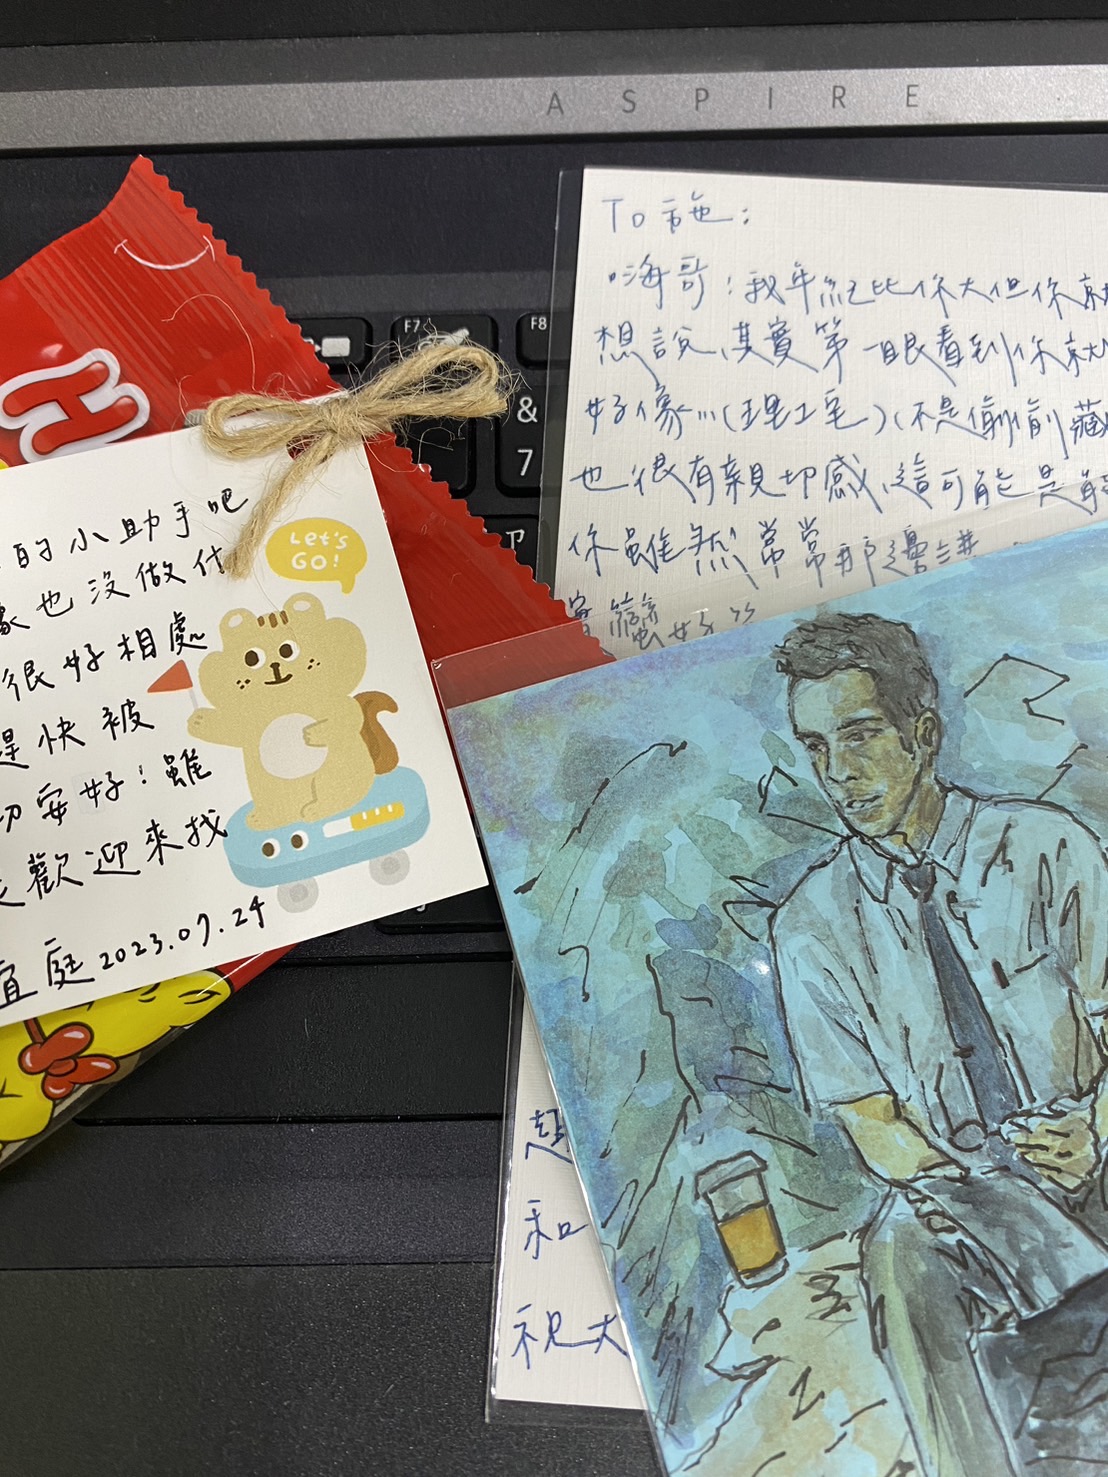 ASPIRE
F7
F8
&
7
H
的小助手吧
也沒做什
很好相處
是快被
切安好!雖
歡迎來找
宜庭 2023.07.24
Let's
GO!
To 施:
嗨哥!我年紀比你大但你就
想說,其實第一眼看到你就
好像…(理工宅)(不是偷偷藏
也很有親切感,這可能是
你雖然常常那邊講
蠻好
和
祝大